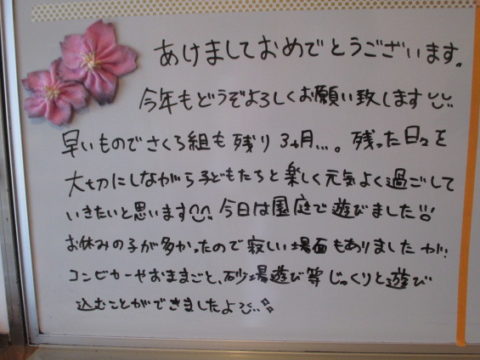 あけましておめでとうございます。
今年もどうぞよろしくお願い致します
早いものでさくら組も残り3ヶ月...。残った日々を
大切にしながら子どもたちと楽しく元気よく過ごして
いきたいと思います 今日は園庭で遊びました!!
お休みの子が多かったので寂しい場面もありましたが、
コンビカーやおままごと、砂場遊び等じっくりと遊び
込むことができましたよ